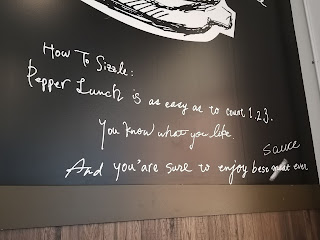 How To Sizzle:
Pepper Lunch is as easy as to count 1.2.3.
You know what you like.
sauce
And you'are sure to enjoy best meat ever